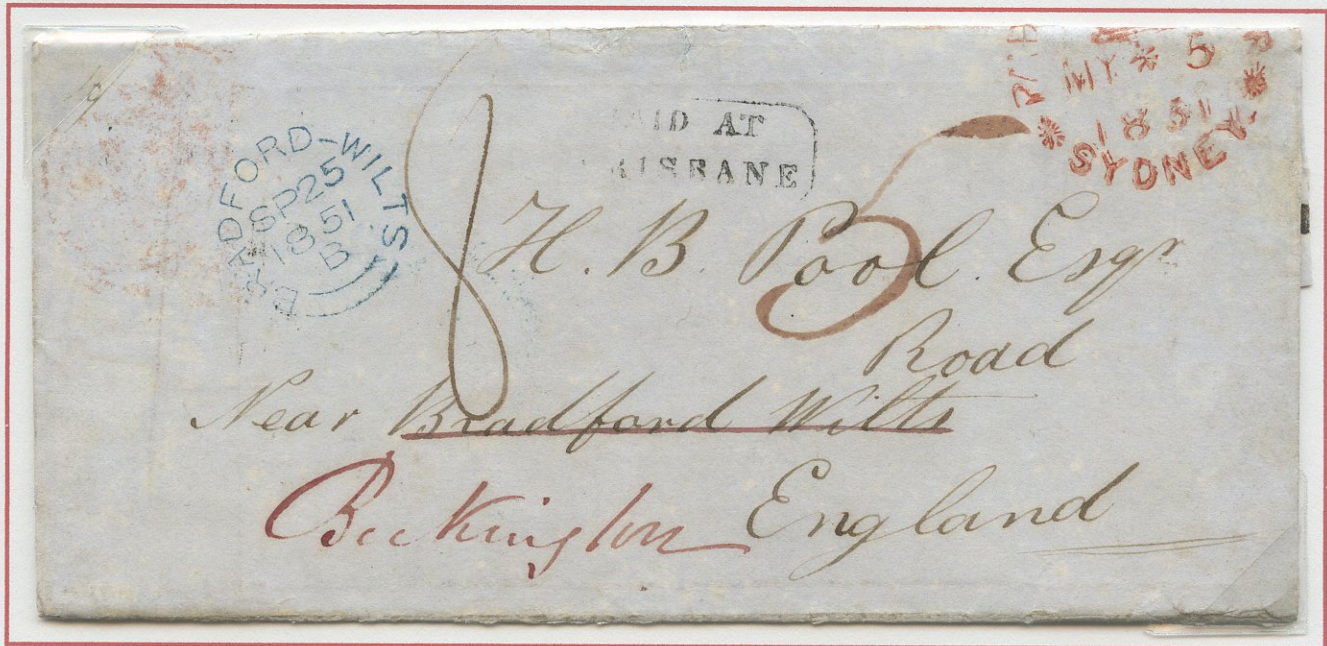 BRADFORD-WILTS
SP25
1851
B
8
PAID AT
BRISBANE
5
PAID
MY * 5
1851
* SYDNEY *
H. B. Pool. Esqr
Road
Near Bradford Wilts
Beckington England